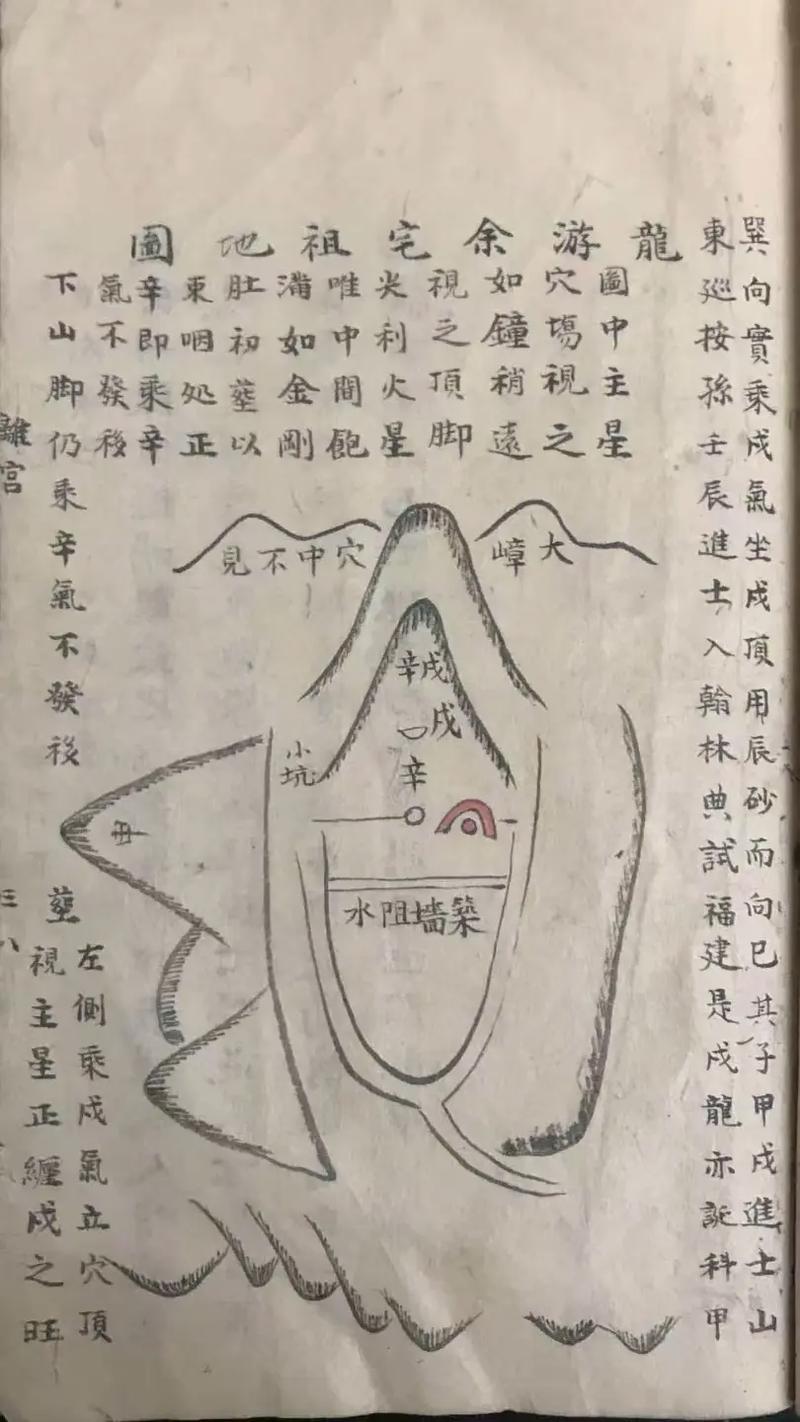 巽向實乘戌氣坐戌頂用辰砂而向巳其子甲戌進士山
東巡按孫壬辰進士入翰林典試福建是戌龍亦誕科甲
龍游余宅祖地圖
圖中主星
穴塲視之
如鐘稍遠
視之頂脚
尖利火星
唯中間飽
滿如金剛
肚初塟以
束咽処正
辛即乘辛
氣不發後
下山脚仍乘辛氣不發後
塟
左側乘戌氣立穴頂
視主星正纏戌之旺
離宮
大嶂
穴中不見
戌辛
戌
辛
小坑
築墙阻水